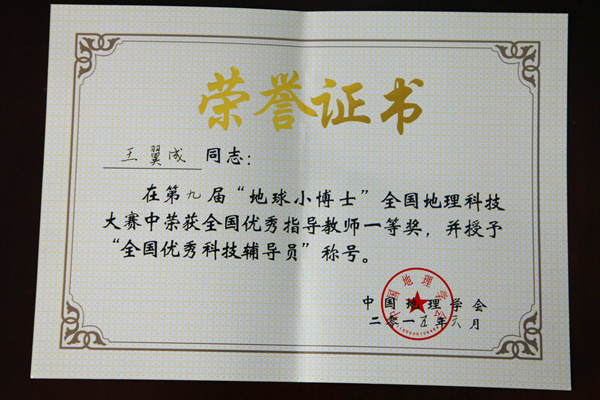 荣誉证书
王翼成 同志：
在第九届“地球小博士”全国地理科技
大赛中荣获全国优秀指导教师一等奖，并授予
“全国优秀科技辅导员”称号。
中国地理学会
中国地理学会
二零一五年六月